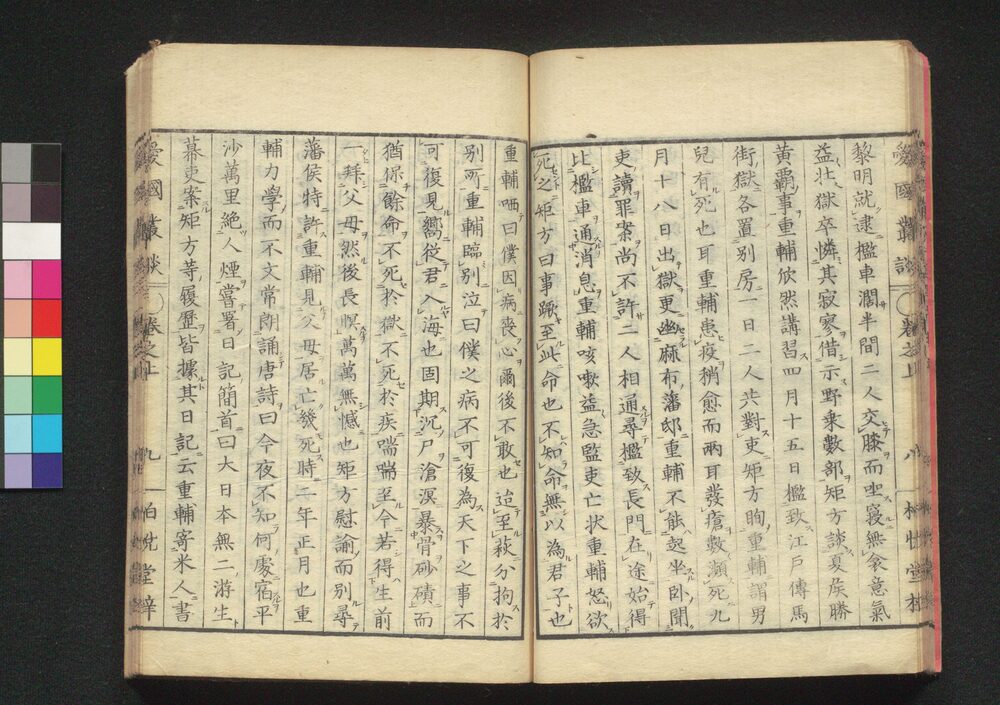 黎明就逮檻車濶半間二人交膝而坐寢無衾意氣
益壯獄卒憐其寂寥借示野乘數部矩方談夏侯勝
黄覇事重輔欣然講習四月十五日檻致江戸傳馬
街獄各置別房一日二人共對吏矩方眴重輔謂男
兒有死也耳重輔患疫稍愈而兩耳發瘡數瀕死九
月十八日出獄更幽麻布藩邸重輔不能起坐卧聞
吏讀罪案尚不許二人相通尋檻致長門在途始得
比檻車通消息重輔咳嗽益急監吏亡状重輔怒欲
死之矩方曰事蹶至此命也不知命無以為君子也
重輔哂曰僕因病喪心爾後不敢也迨至萩分拘於
別所重輔臨別泣曰僕之病不可復為天下之事不
可復見嚮從君入海也固期沉尸滄溟暴骨砂磧而
猶保餘命不死於獄不死於疾喘喘至今若得生前
一拜父母然後長瞑萬萬無憾也矩方慰諭而別尋
藩侯特許重輔見父母居亡幾死時二年正月也重
輔力學而不文常朗誦唐詩曰今夜不知何處宿平
沙萬里絶人煙嘗署日記簡首曰大日本無二游生
幕吏案矩方等履歷皆據其日記云重輔寄米人書
卷之上 九